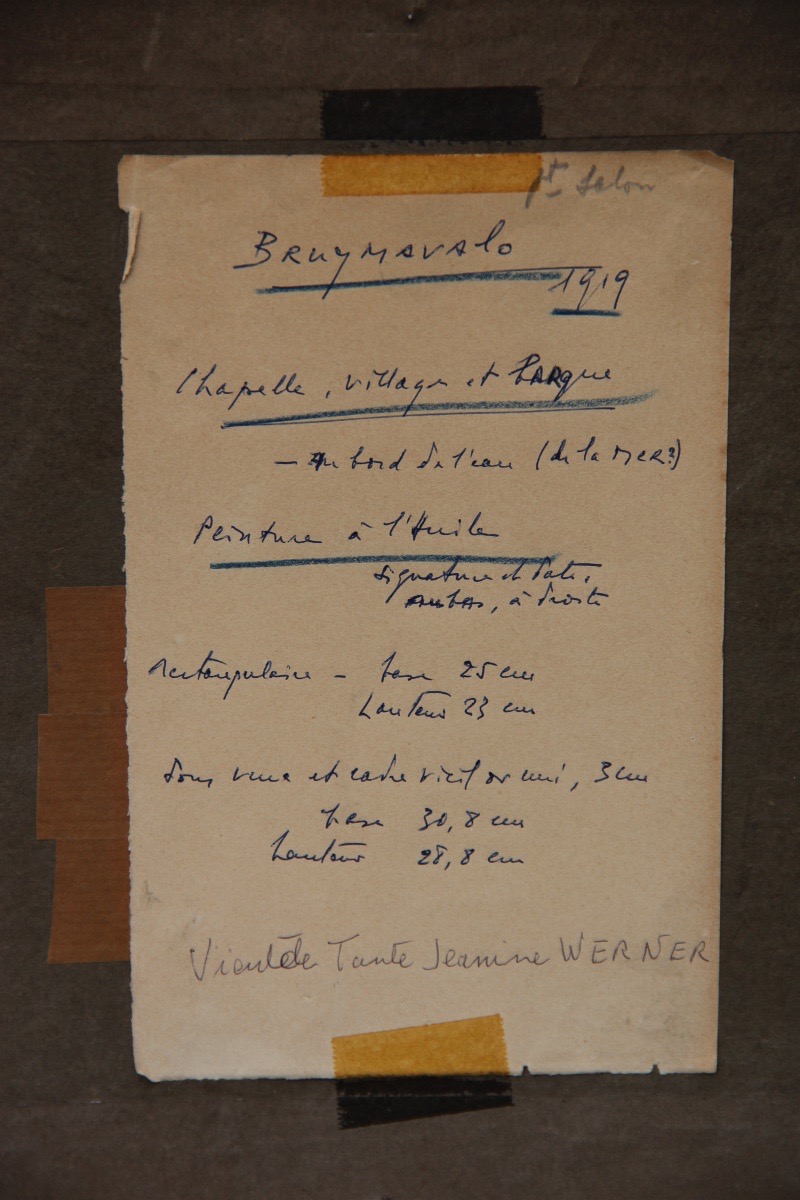 Pt Salon
Bruymavalo
1919
Chapelle, village et Barque
- au bord de l'eau (de la MER?)
Peinture à l'Huile
signature et date,
au bas, à droite
Rectangulaire - base 25 cm
hauteur 23 cm
Sous verre et cadre vieil or uni, 3 cm
base 30,8 cm
hauteur 28,8 cm
Vient de Tante Jeanine WERNER